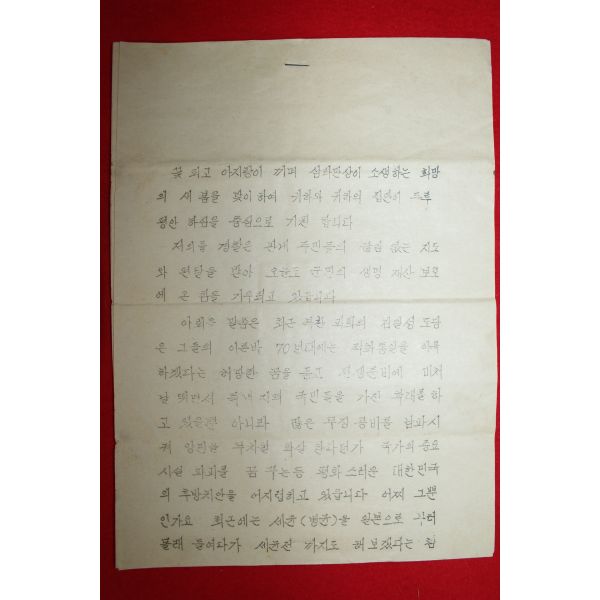 꽃 피고 아지랑이 끼며 삼라만상이 소생하는 희망
의 새 봄을 맞이하여 귀하와 귀하의 집안이 두루
평안 하심을 충심으로 기원 합니다
저희들 경찰은 관내 주민들의 끊임 없는 지도
와 편달을 받아 오늘도 군민의 생명 재산 보호
에 온 힘을 기우리고 있습니다
아뢰올 말씀은 최근 북한 괴뢰의 김일성 도당
은 그들의 이른바 70년대에는 적화통일을 이룩
하겠다는 허망한 꿈을 꾸고 전쟁준비에 미쳐
날 뛰면서 북녘 지의 국민들을 가진 학대를 하
고 있을뿐 아니라 많은 무장 공비를 남파시
켜 양민을 무차별 학살 한다던가 국가의 중요
시설 파괴를 꿈 꾸는등 평화 스러운 대한민국
의 후방치안을 어지럽히고 있습니다 어찌 그뿐
인가요 최근에는 세균(병균)을 일본으로 부터
몰래 들여다가 세균전 까지도 해 보겠다는 참